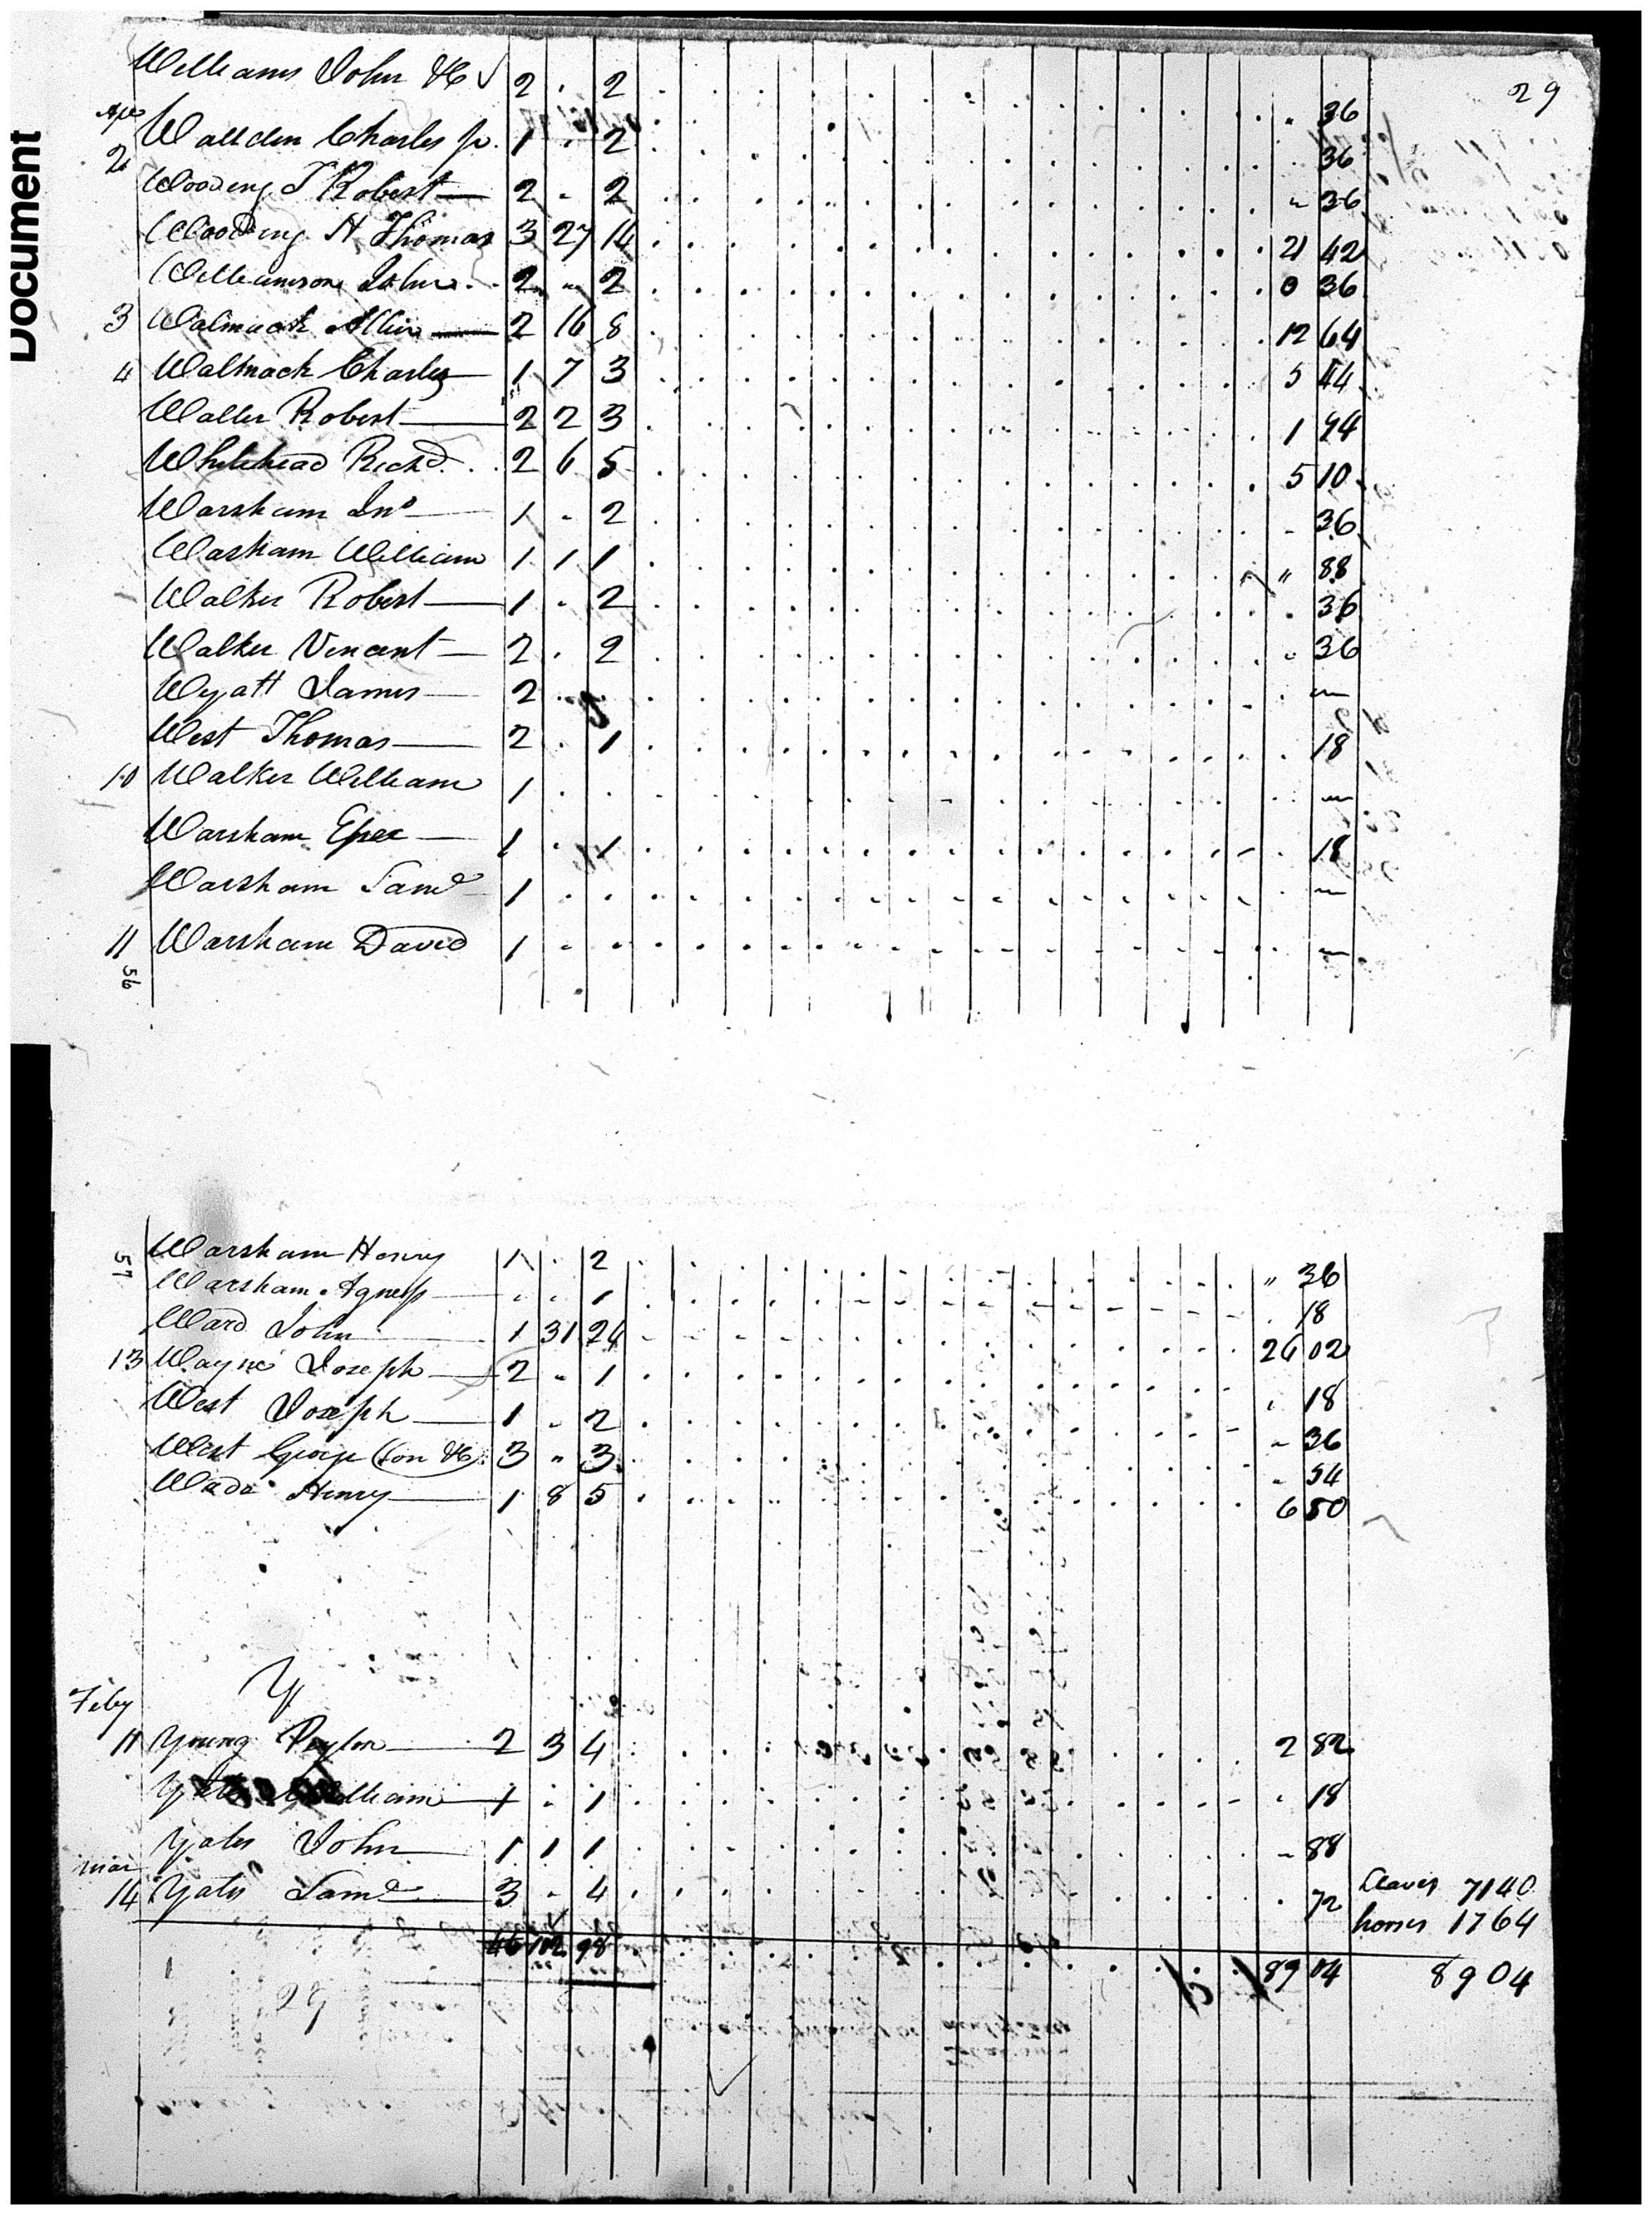 Document
29
Williams John &C 2 . 2 . 36
Apl
Wallden Charles jr. 1 . 2 36
2 Wooding T Robert 2 - 2 - 36
Wooding H Thomas 3 27 14 21 42
Williamson John 2 - 2 0 36
3 Walmack Allin 2 16 8 12 64
4 Walmack Charles 1 7 3 5 44
Waller Robert 2 2 3 1 94
Whitehead Richd. 2 6 5 5 10
Warsham Jno 1 - 2 - 36
Washam William 1 1 1 " 88
Walker Robert 1 - 2 . 36
Walker Vincent 2 . 2 - 36
Wyatt James 2 . . —
West Thomas 2 . 1 18
10 Walker William 1 . . —
Warsham Epee 1 . 1 18
Warsham Saml 1 . . —
11 Warsham David 1 - . —
56
57
Warsham Henry 1 . 2 " 36
Warsham Agness . . 1 . 18
Ward John 1 31 24 26 02
13 Wayne Joseph 2 - 1 . 18
West Joseph 1 - 2 - 36
West George (Con &C) 3 " 3 - 54
Wade Henry 1 8 5 6 50
Y
Feby
11 Young Peyton 2 3 4 2 82
William 1 - 1 . 18
Yates John 1 1 1 - 88
Mar
14 Yates Saml 3 - 4 . 72
Slaves 7140
horses 1764
46 102 98 89 04 8904
29